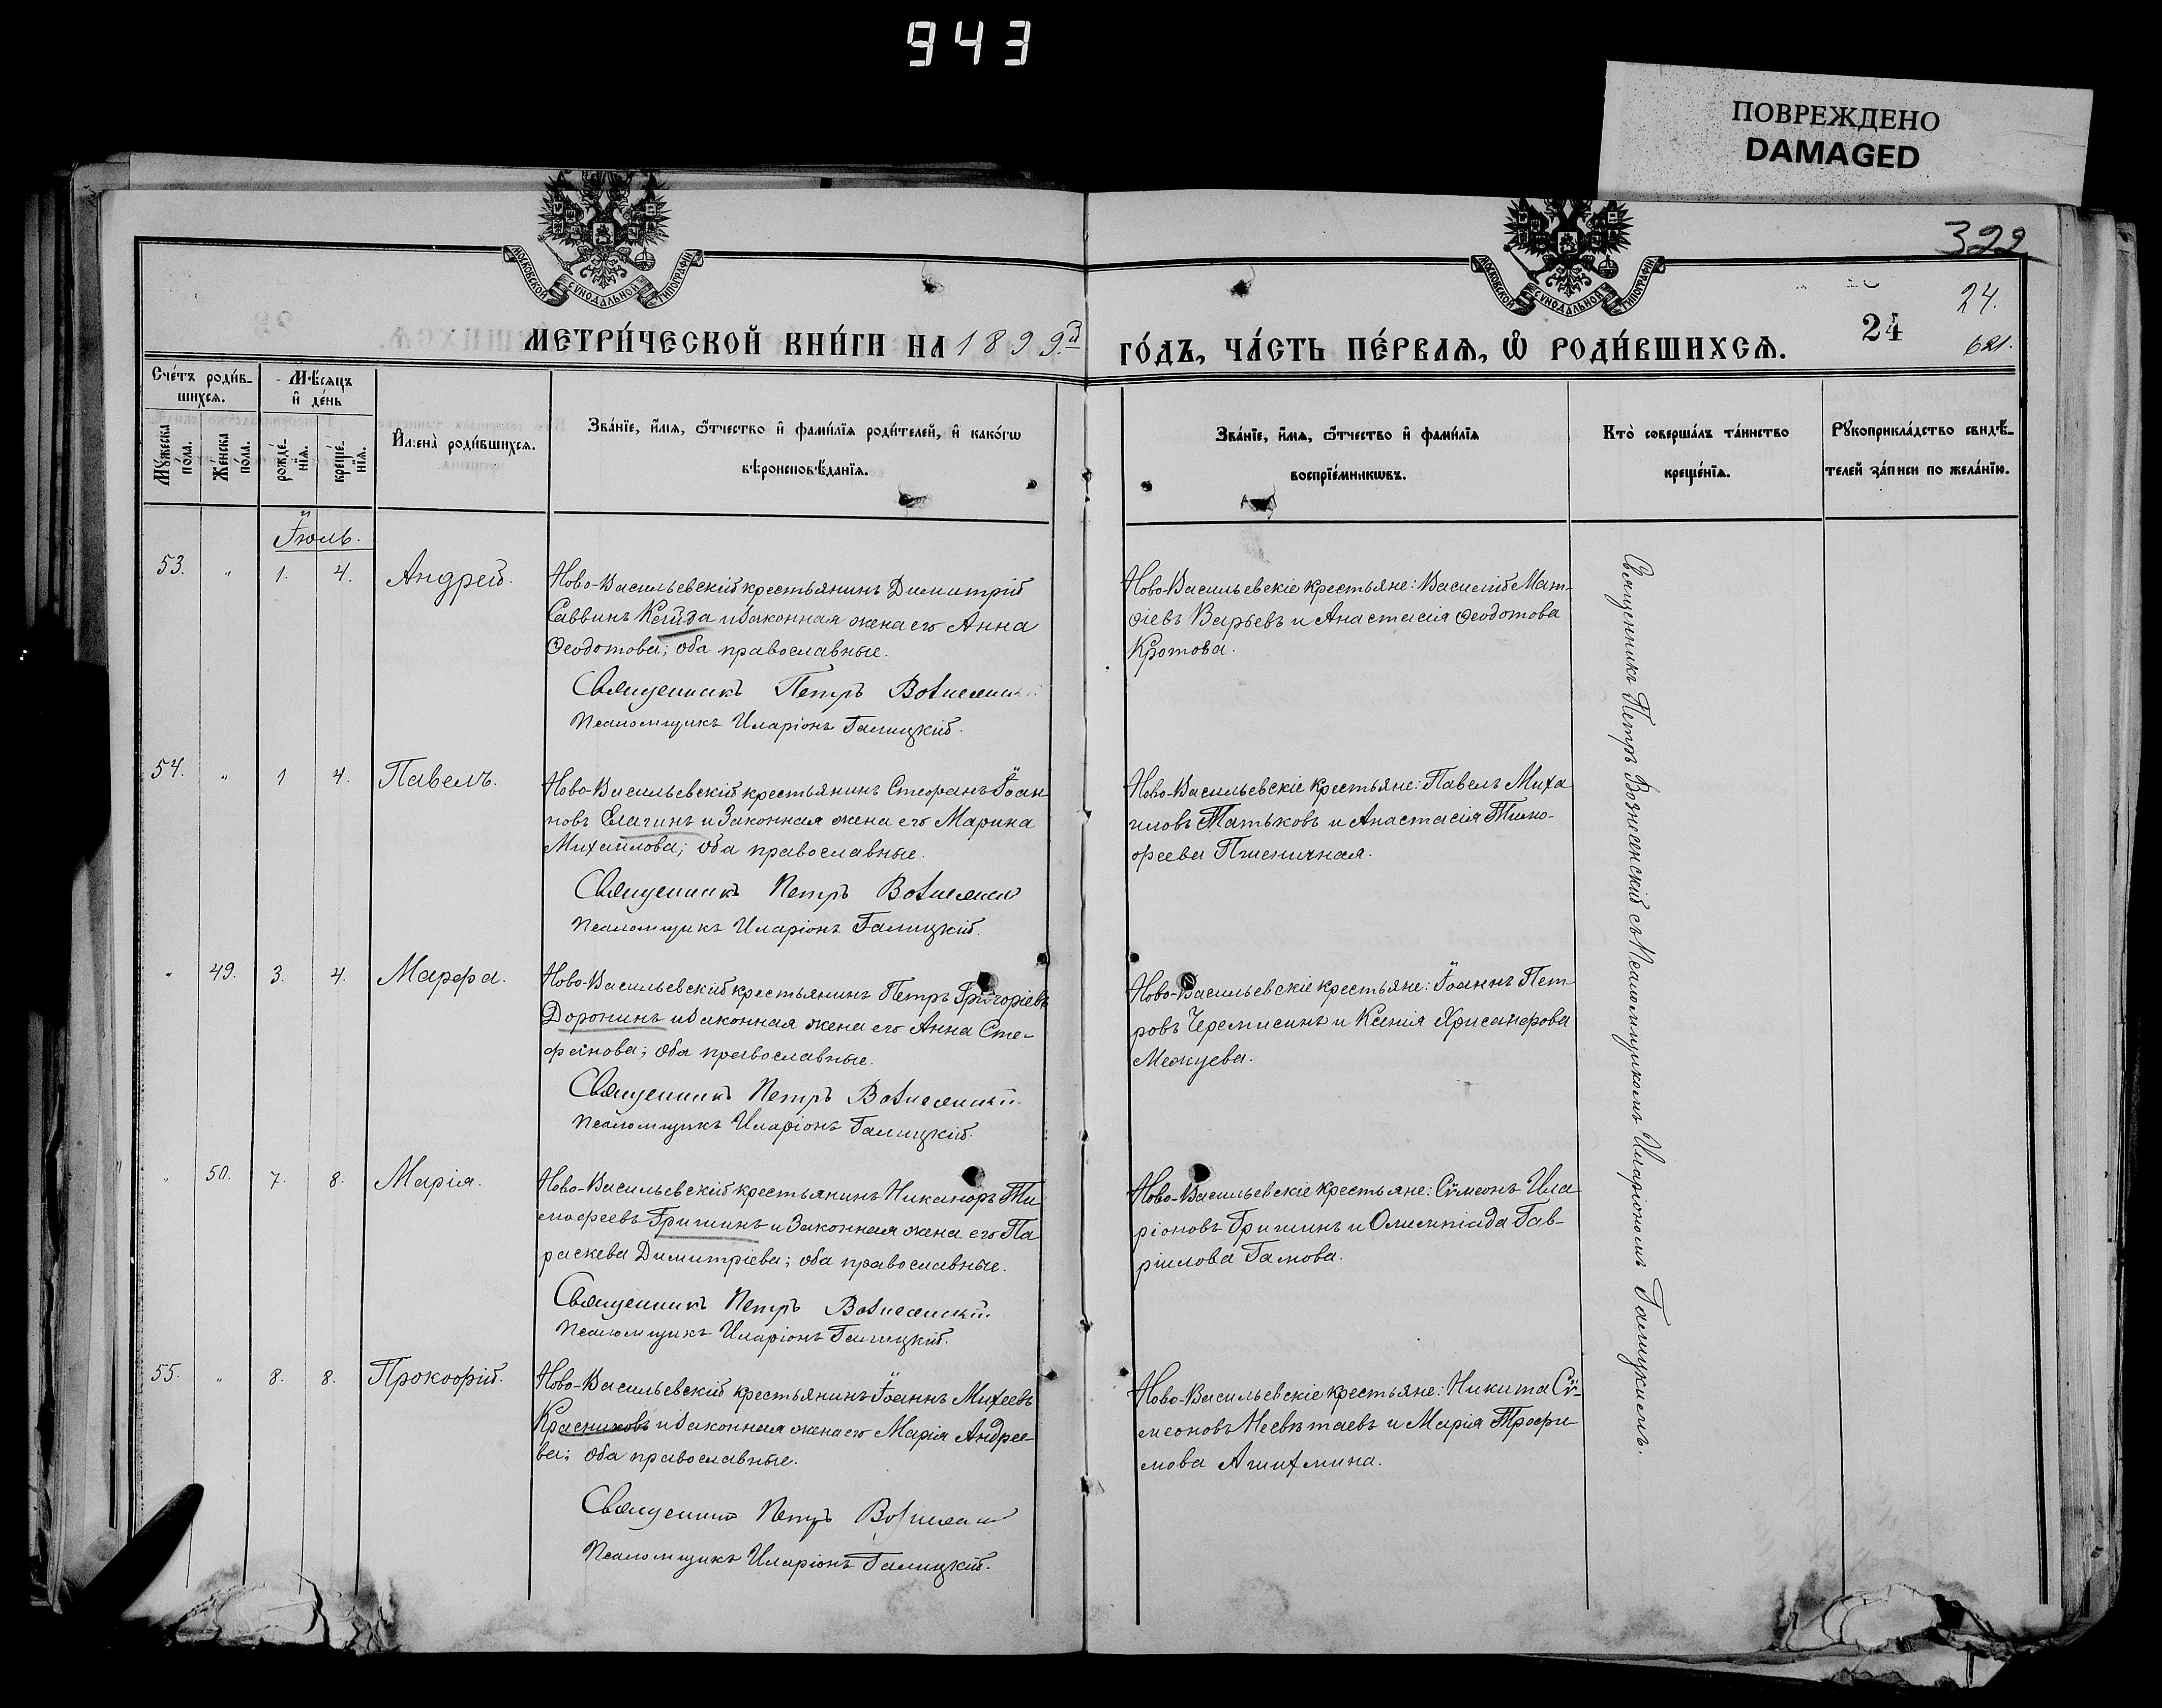 943
ПОВРЕЖДЕНО
DAMAGED
322
24.
24
621.
МОСКОВСКОЙ СѴНОДАЛЬНОЙ ТИПОГРАФІИ
МОСКОВСКОЙ СѴНОДАЛЬНОЙ ТИПОГРАФІИ
МЕТРИ́ЧЕСКОЙ КНИ́ГИ НА 1899й
ГО́ДЪ, ЧА́СТЬ ПЕ́РВАѦ, Ѡ҆ РОДИ́ВШИХСѦ.
Сче́тъ роди́в-
шихсѧ.
Мѣ́сѧцъ
и҆ де́нь
Мꙋ́жеска по́ла.
Же́нска по́ла.
рожде́-
нїѧ.
креще́-
нїѧ.
И҆мена̀ роди́вшихсѧ.
Зва́нїе, и҆́мѧ, ѻ҆́тчество и҆ фами́лїѧ роди́телей, и҆ како́гѡ
вѣроисповѣ́данїѧ.
Зва́нїе, и҆́мѧ, ѻ҆́тчество и҆ фами́лїѧ
воспрїе́мникѡвъ.
Кто̀ соверша́лъ та́инство
креще́нїѧ.
Рꙋкоприкла́дство свидѣ́-
телей за́писи по жела́нїю.
Іюль.
53. " 1. 4. Андрей.
Ново-Васильевскій крестьянинъ Димитрій
Саввинъ Кайда и законная жена его Анна
Ѳеодотова; оба православные.
Священникъ Петръ Вознесенскій
Псаломщикъ Иларіонъ Галицкій.
Ново-Васильевскіе крестьяне: Василій Мат-
ѳіевъ Варьевъ и Анастасія Ѳеодотова
Кротова.
54. " 1 4. Павелъ.
Ново-Васильевскій крестьянинъ Стефанъ Іоан
новъ Елагинъ и законная жена его Марина
Михайлова; оба православные.
Священникъ Петръ Вознесенскій
Псаломщикъ Иларіонъ Галицкій.
Ново-Васильевскіе крестьяне: Павелъ Миха
иловъ Татьковъ и Анастасія Тимо-
феева Пшеничная.
" 49. 3. 4. Марфа.
Ново-Васильевскій крестьянинъ Петръ Григоріевъ
Доронинъ и законная жена его Анна Сте-
фанова; оба православные.
Священникъ Петръ Вознесенскій
Псаломщикъ Иларіонъ Галицкій.
Ново-Васильевскіе крестьяне: Іоаннъ Пет
ровъ Черемисинъ и Ксенія Хрисанфова
Межуева.
" 50. 7. 8. Марія.
Ново-Васильевскій крестьянинъ Никаноръ Ти
мофеевъ Гришинъ и законная жена его Па
раскева Димитріева; оба православные.
Священникъ Петръ Вознесенскій
Псаломщикъ Иларіонъ Галицкій.
Ново-Васильевскіе крестьяне: Сѵмеонъ Ила
ріоновъ Гришинъ и Олимпіада Гав-
ріилова Гамова.
55. " 8. 8. Прокофій.
Ново-Васильевскій крестьянинъ Іоаннъ Михеевъ
Красниковъ и законная жена его Марія Андрее-
ва; оба православные.
Священникъ Петръ Вознесенскій
Псаломщикъ Иларіонъ Галицкій.
Ново-Васильевскіе крестьяне: Никита Сѵ-
меоновъ Неевѣтаевъ и Марія Трофи-
мова Ашихмина.
Священникъ Петръ Вознесенскій съ Псаломщикомъ Иларіономъ Галицкимъ.